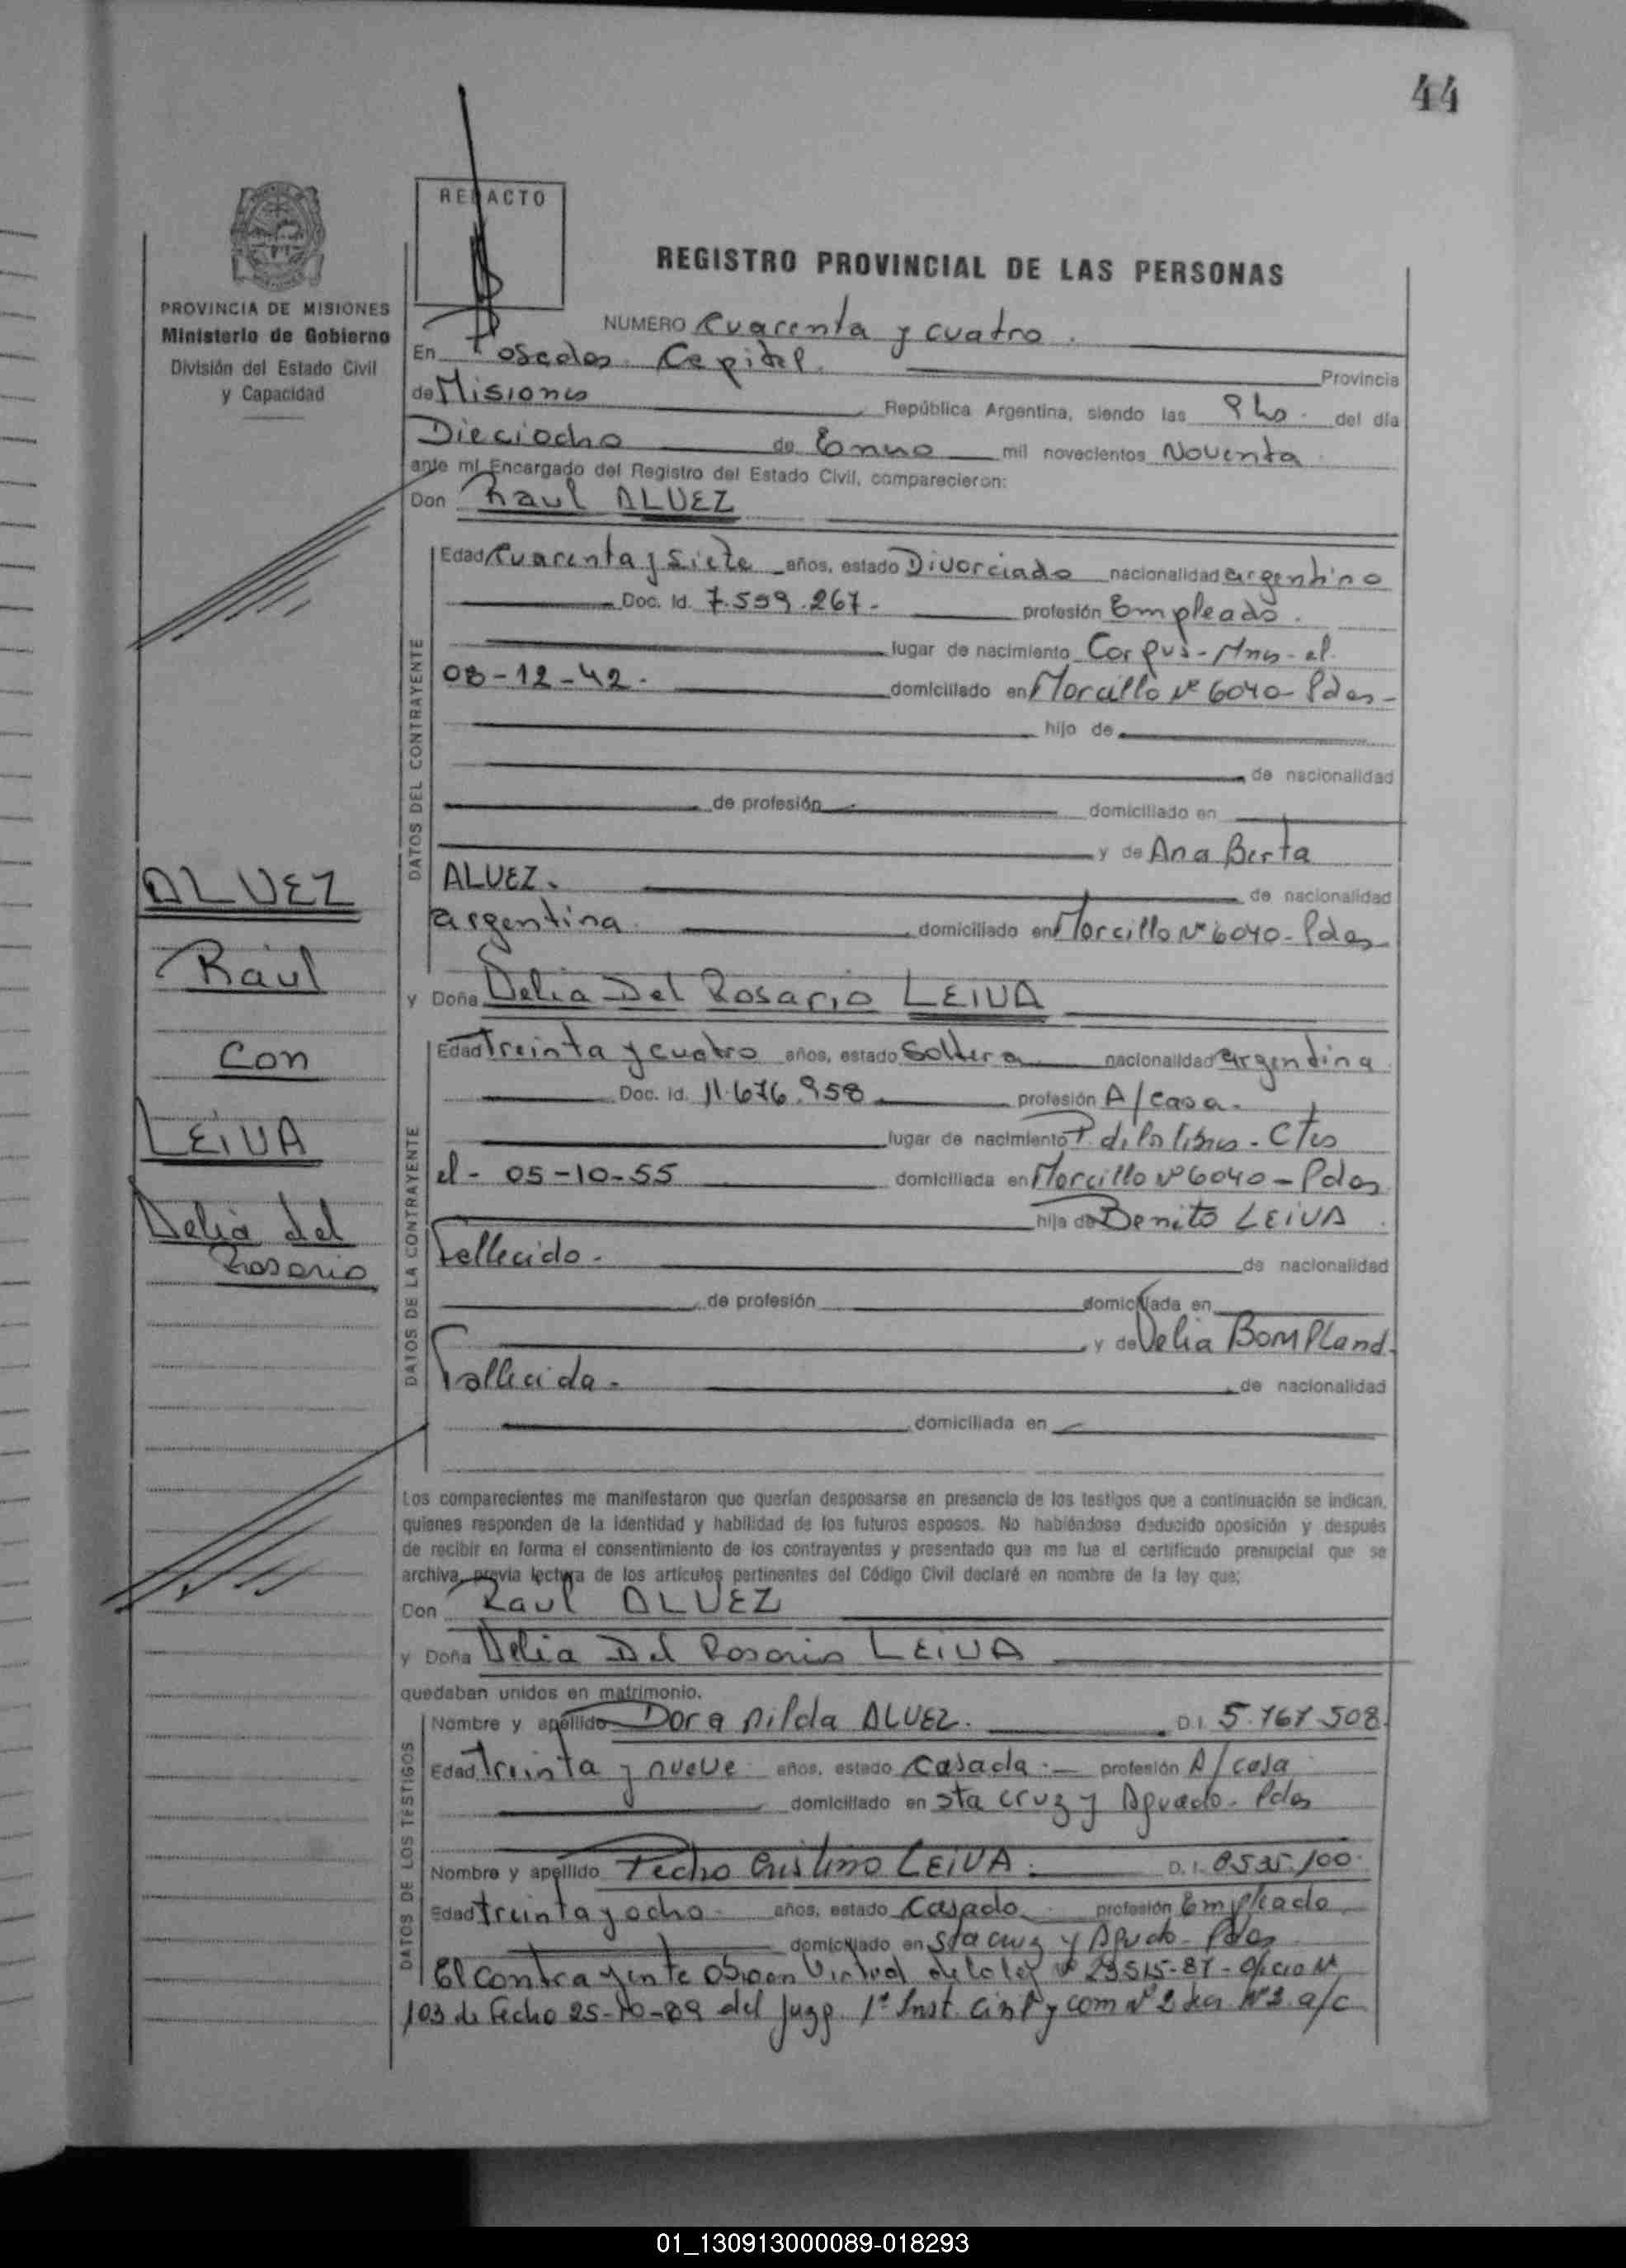 44
REDACTO
REGISTRO PROVINCIAL DE LAS PERSONAS
PROVINCIA DE MISIONES
Ministerio de Gobierno
División del Estado Civil
y Capacidad
NUMERO Cuarenta y cuatro.
En Posadas Capital. Provincia
de Misiones República Argentina, siendo las 9 hs. del día
Dieciocho de Enero mil novecientos Noventa
ante mí Encargado del Registro del Estado Civil, comparecieron:
Don Raul ALVEZ
DATOS DEL CONTRAYENTE
Edad Cuarenta y Siete años, estado Divorciado nacionalidad argentino
Doc. Id. 7.559.267.- profesión Empleado.
lugar de nacimiento Corpus-Mnes-el
08-12-42. domiciliado en Morcillo Nº 6040-Pdas-
hijo de
de nacionalidad
de profesión domiciliado en
y de Ana Berta
ALVEZ. de nacionalidad
argentina domiciliado en Morcillo Nº 6040-Pdas
ALVEZ
Raúl
Con
LEIVA
Delia del
Rosario
y Doña Delia Del Rosario LEIVA
DATOS DE LA CONTRAYENTE
Edad Treinta y cuatro años, estado Soltera nacionalidad argentina
Doc. Id. 11.676.958 profesión A/casa.
lugar de nacimiento P. de los libres-Ctes
el- 05-10-55 domiciliada en Morcillo Nº 6040-Pdas
hija de Benito LEIVA
Fallecido. de nacionalidad
de profesión domiciliada en
y de Delia BOMPLand.
Fallecida. de nacionalidad
domiciliada en
Los comparecientes me manifestaron que querían desposarse en presencia de los testigos que a continuación se indican,
quienes responden de la identidad y habilidad de los futuros esposos. No habiéndose deducido oposición y después
de recibir en forma el consentimiento de los contrayentes y presentado que me fue el certificado prenupcial que se
archiva, previa lectura de los artículos pertinentes del Código Civil declaré en nombre de la ley que:
Don Raul ALVEZ
y Doña Delia Del Rosario LEIVA
quedaban unidos en matrimonio.
DATOS DE LOS TESTIGOS
Nombre y apellido Dora Nilda ALVEZ. D.I. 5.767.508
Edad Treinta y nueve años, estado Casada.- profesión A/casa
domiciliado en Sta cruz y Aguado-Pdas
Nombre y apellido Pedro Cristino LEIVA. D.I. 8535.100
Edad treinta y ocho años, estado Casado profesión Empleado
domiciliado en Sta cruz y Aguado-Pdas
El contrayente en Virtud de la ley Nº 23515-87-Oficio Nº
103 de fecho 25-10-89 del Juzg. 1ª Inst. Civil y com Nº 2 Nº 3 a/c
01_130913000089-018293